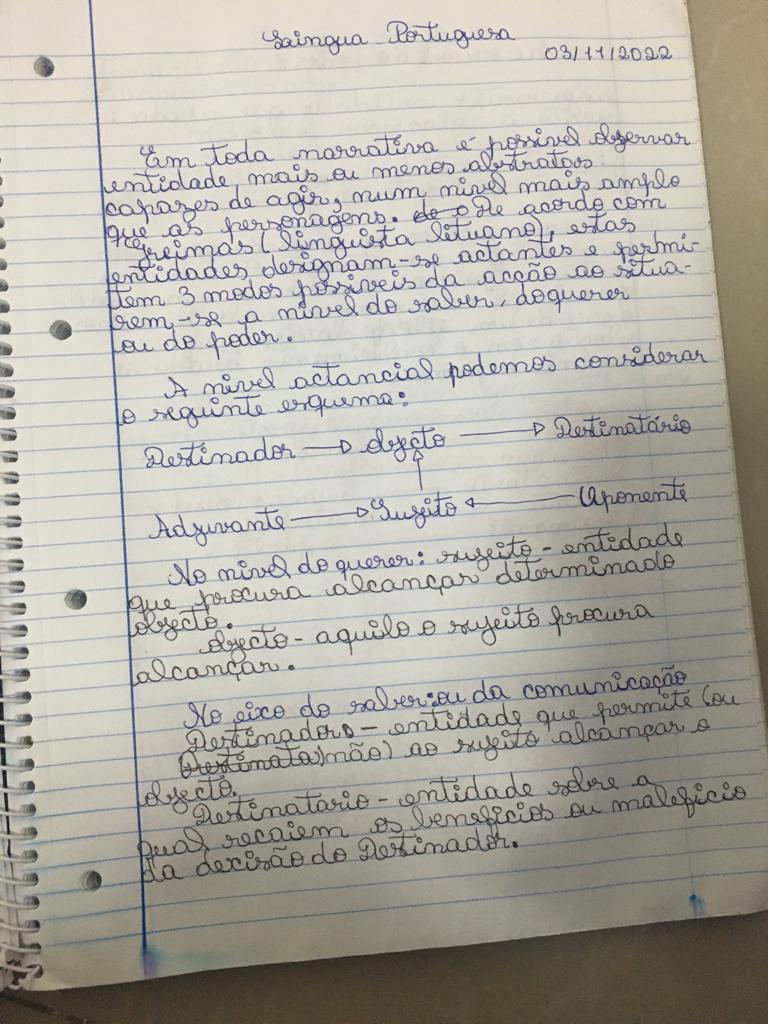 Laingua Portuguesa
03/11/2022
Em toda narrativa é possível observar
entidade, mais ou menos abstratas
capazes de agir, num nivel mais amplo
que as personagens. De acordo com
Greimas (linguista lituano), estas
entidades designam-se actantes e permi-
tem 3 modos possíveis da acção ao situa-
rem-se a nivel do saber, do querer
ou do poder.
A nivel actancial podemos considerar
o seguinte esquema:
Destinador → objecto → Destinatário
Adjuvante → Sujeito ← Oponente
No nivel do querer: sujeito - entidade
que procura alcançar determinado
objecto.
objecto - aquilo o sujeito procura
alcançar.
No eixo do saber: ou da comunicação
Destinador - entidade que permite (ou
não) ao sujeito alcançar o
objecto.
Destinatario - entidade sobre a
qual recaiem os beneficios ou maleficio
da decisão do Destinador.